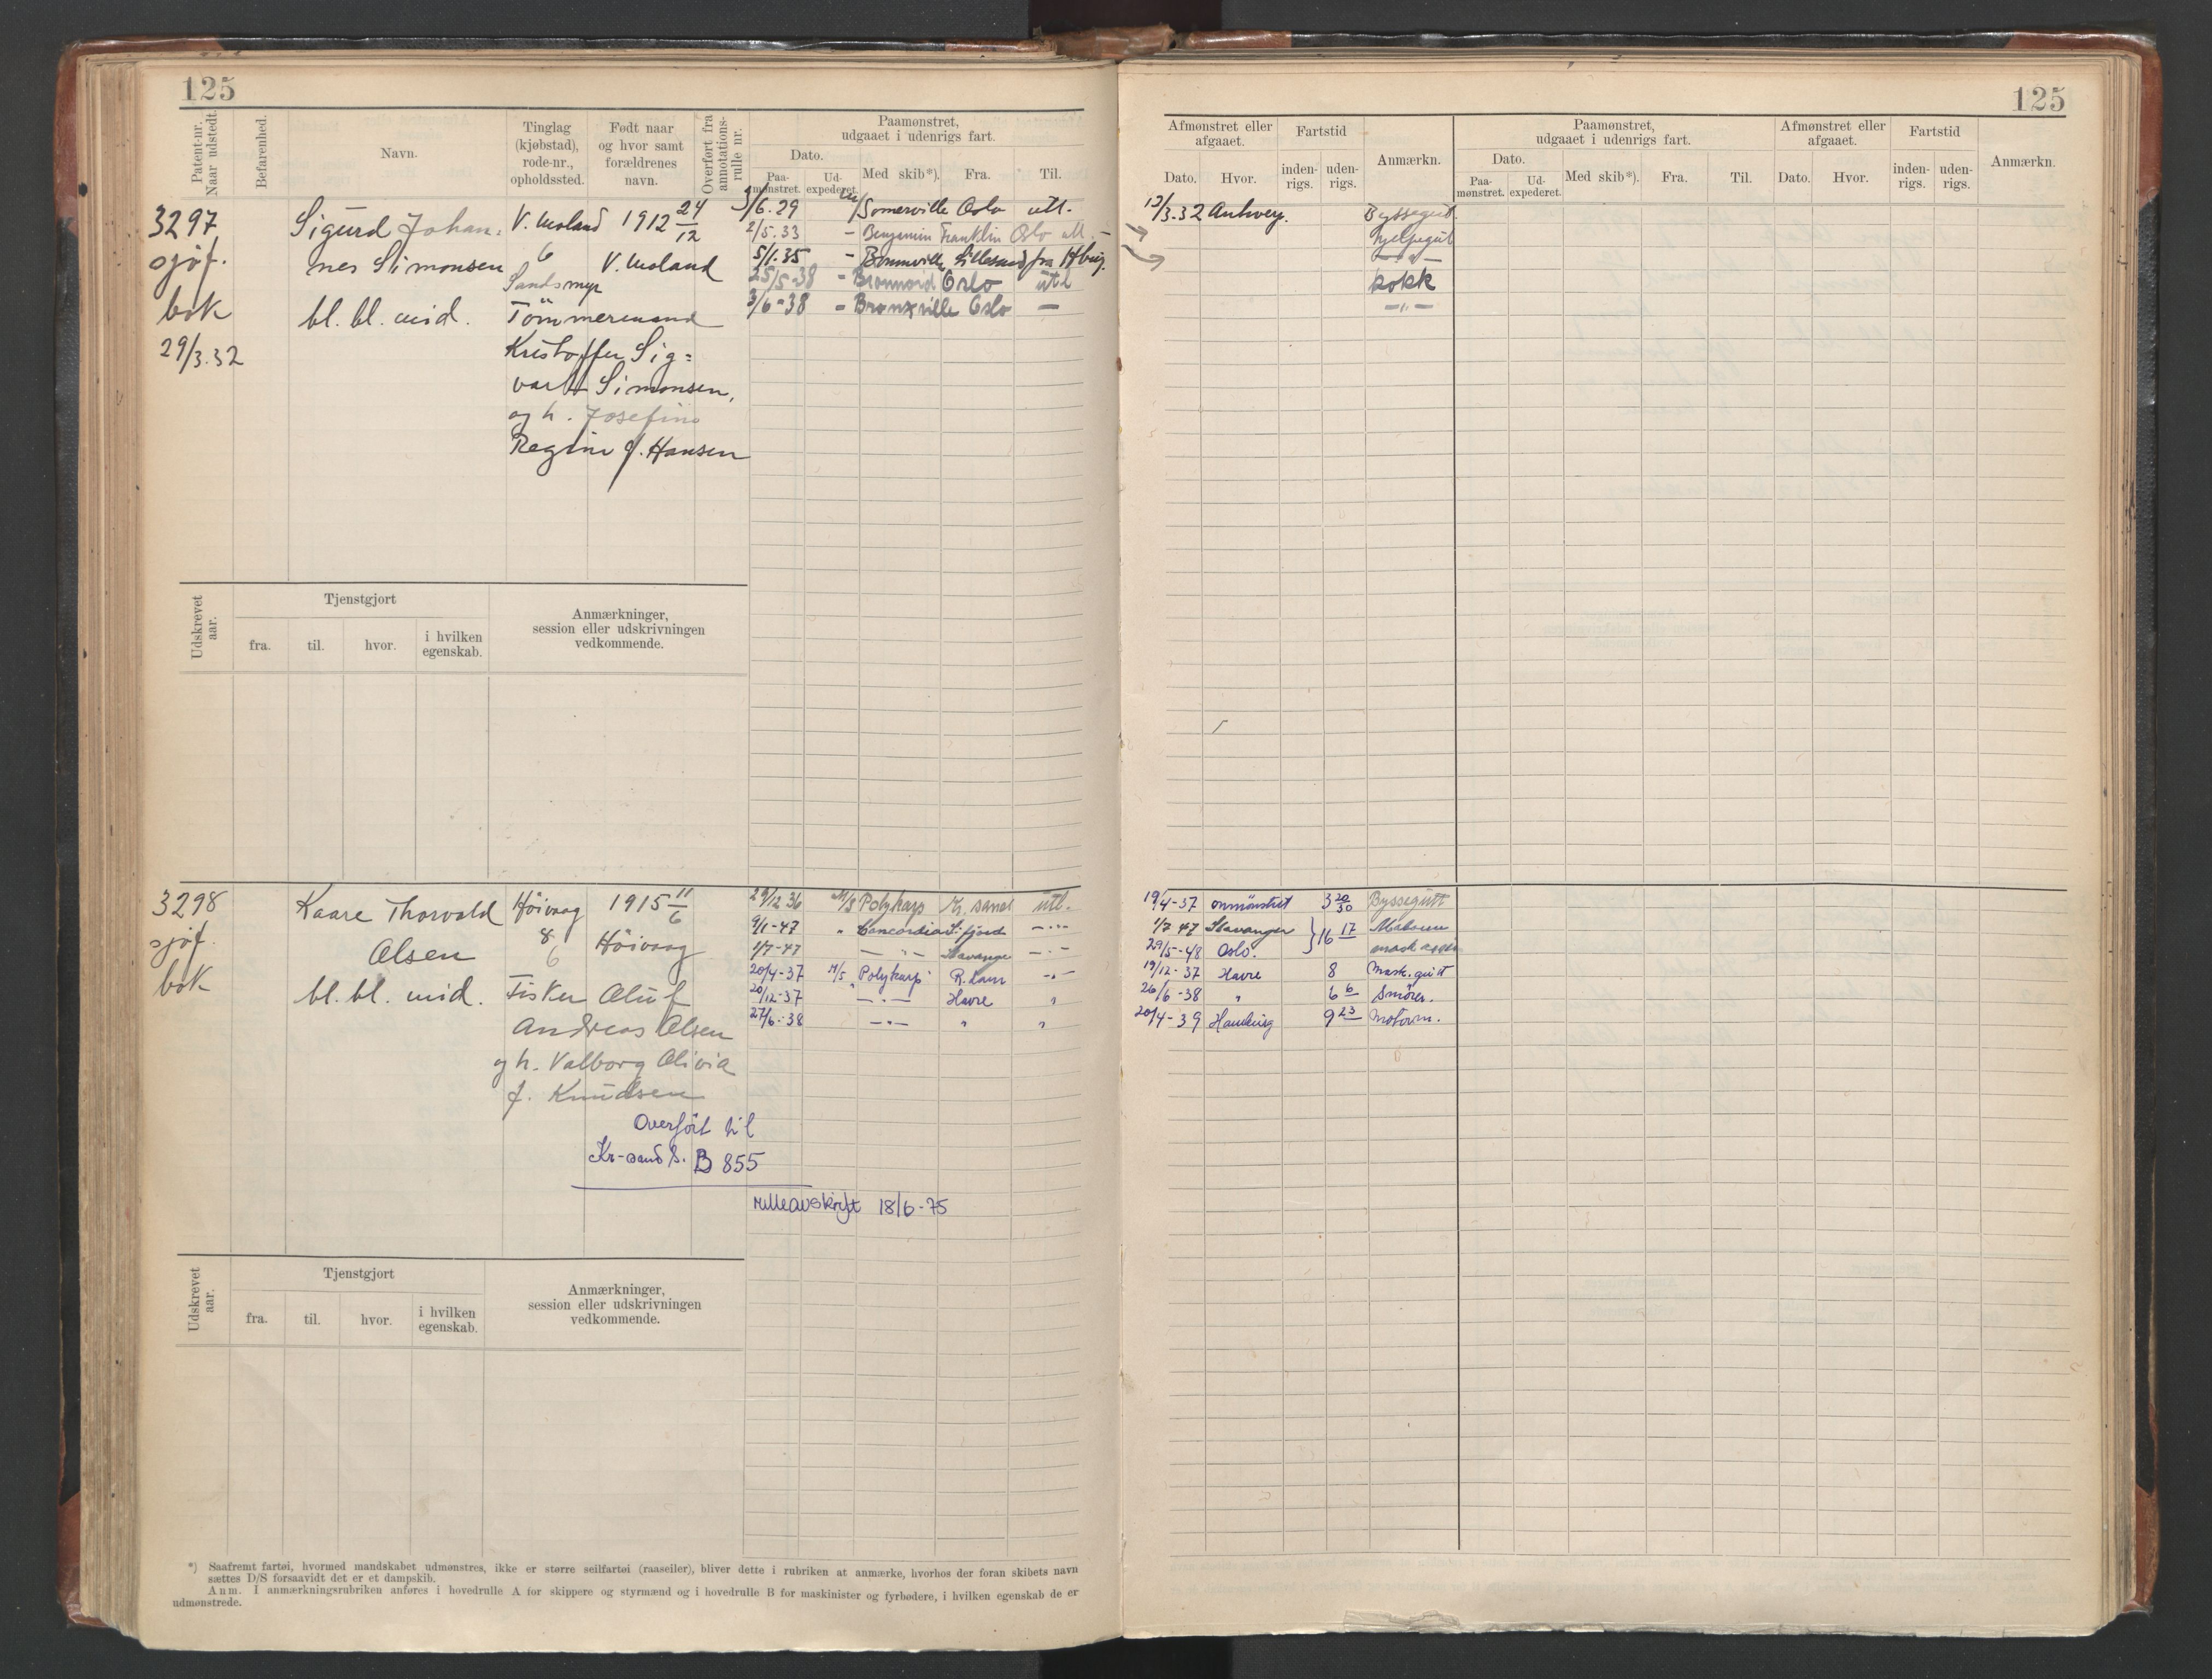 125
Patent-nr. Naar udstedt.
Befarenhed.
Navn.
Tinglag (kjøbstad), rode-nr., opholdssted.
Født naar og hvor samt forældrenes navn.
Overført fra annotations-rulle nr.
Paamønstret, udgaaet i udenrigs fart.
Dato.
Paa-mønstret.
Ud-expederet.
Med skib*).
Fra.
Til.
3297 Sigurd Johan- V. Moland 1912 24/12 3/6.29 Somerville Oslo utl.
2/5.33 - Benjamin Franklin Oslo utl.
sjøf. nes Simonsen 6 V. Moland 5/1.35 - Lillesand fra Hbrg.
Sandsmyr 25/5-38 - Oslo utl
bok bl. bl. mid. Tömmermand 3/6-38 - Bronxville Oslo —
29/3.32 Kristoffer Sig=
vart Simonsen,
og h. Josefine
Regine f. Hansen
Udskrevet aar.
Tjenstgjort
fra.
til.
hvor.
i hvilken egenskab.
Anmærkninger, session eller udskrivningen vedkommende.
3298 Kaare Thorvald Höivaag 1915 11/6 29/12 36 M/S Polykarp Kr. sand utl.
sjøf. Olsen 8 Höivaag 9/1-47 " Concordia S. fjord —"—
6 1/7-47 —"— Stavanger —"—
bok bl. bl. mid. Fisker Oluf 20/4-37 M/S Polykarp R.dam —"—
20/12-37 —"— Havre "
Andreas Olsen 27/6-38 —"— " "
og h. Valborg Olivia
f. Knudsen
Overført til
Kr-sand S. B 855
rulleavskrift 18/6-75
Udskrevet aar.
Tjenstgjort
fra.
til.
hvor.
i hvilken egenskab.
Anmærkninger, session eller udskrivningen vedkommende.
*) Saafremt fartøi, hvormed mandskabet udmønstres, ikke er større seilfartøi (raaseiler), bliver dette i rubriken at anmærke, hvorhos der foran skibets navn
sættes D/S forsaavidt det er et dampskib.
Anm. I anmærkningsrubriken anføres i hovedrulle A for skippere og styrmænd og i hovedrulle B for maskinister og fyrbødere, i hvilken egenskab de er
udmønstrede.
125
Afmønstret eller afgaaet.
Dato.
Hvor.
Fartstid
inden-rigs.
uden-rigs.
Anmærkn.
Paamønstret, udgaaet i udenrigs fart.
Dato.
Paa-mønstret.
Ud-expederet.
Med skib*).
Fra.
Til.
Afmønstret eller afgaaet.
Dato.
Hvor.
Fartstid
inden-rigs.
uden-rigs.
Anmærkn.
13/3.32 Antwerp. Byssegut.
hjelpegut
—"—
kokk
—"—
19/4-37 ommönstret 3 20/30 Byssegutt
1/7 47 Stavanger } 16 17 Matros
29/5-48 Oslo.
19/12-37 Havre 8 Mask.gutt
26/6-38 " 6 6 Smörer.
20/4-39 Hamburg 9 23 Motorm.